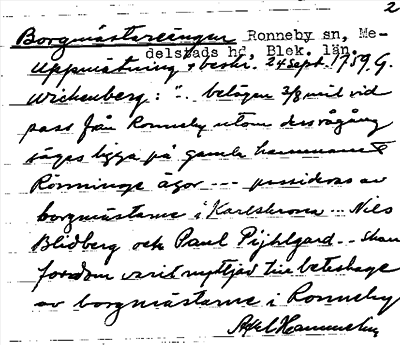 2
Borgmästareängen Ronneby sn, Me-
delstads hd, Blek. län.
Uppmätning o beskr. 24 sept. 1759. G.
Wickenberg: "... belägen 3/8 mil vid
pass från Ronneby utom dess rågång
säges ligga på gamla hemmanet
Rönninge ägor --- possideras av
borgmästarne i Karlskrona --- Nils
Blidberg och Paul Pijhlgard -- skan
fordom varit nyttjad till beteshage
av borgmästarne i Ronneby
Axel